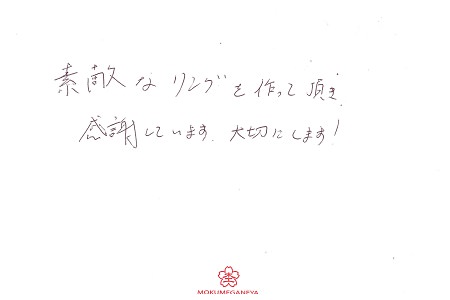 素敵なリングを作って頂き、
感謝しています。大切にします!
MOKUMEGANEYA